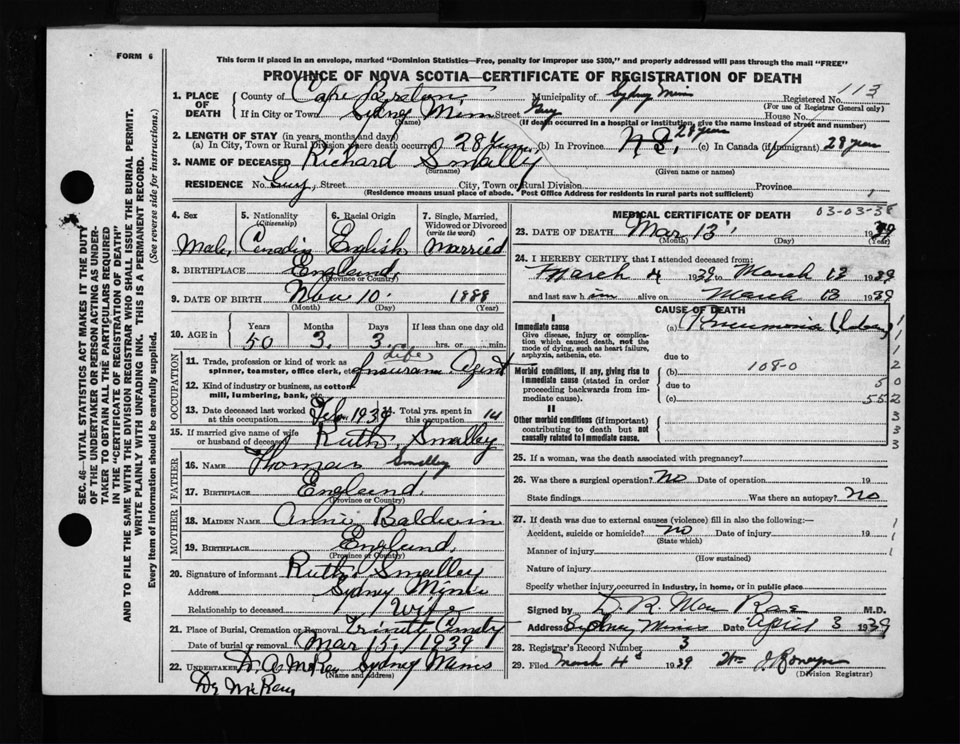 FORM 6
This form if placed in an envelope, marked "Dominion Statistics—Free, penalty for improper use $300," and properly addressed will pass through the mail "FREE"
PROVINCE OF NOVA SCOTIA—CERTIFICATE OF REGISTRATION OF DEATH
113
1. PLACE OF DEATH County of Cape Breton Municipality of Sydney Mines Registered No.
(For use of Registrar General only)
If in City or Town Sydney Mines Street Guy House No.
(Name) (If death occurred in a hospital or institution, give the name instead of street and number)
2. LENGTH OF STAY (in years, months and days)
(a) In City, Town or Rural Division where death occurred 28 Years (b) In Province N.S. 28 years (c) In Canada (if immigrant) 28 years
3. NAME OF DECEASED Richard Smalley
(Surname) (Given name or names)
RESIDENCE No. Guy Street City, Town or Rural Division Province
(Residence means usual place of abode. Post Office Address for residents in rural parts not sufficient) 1
4. Sex 5. Nationality (Citizenship) 6. Racial Origin 7. Single, Married, Widowed or Divorced (write the word)
Male English Married
8. BIRTHPLACE England
(Province or Country)
9. DATE OF BIRTH Nov 10 1888
(Month) (Day) (Year)
10. AGE in Years Months Days If less than one day old
50 3 3 hrs. or min.
OCCUPATION
11. Trade, profession or kind of work as spinner, teamster, office clerk, etc. Life Insurance Agent
12. Kind of industry or business, as cotton mill, lumbering, bank, etc.
13. Date deceased last worked at this occupation Feb. Total yrs. spent in this occupation 14
15. If married give name of wife or husband of deceased Ruth Smalley
FATHER
16. NAME Thomas Smalley
17. BIRTHPLACE England
(Province or Country)
MOTHER
18. MAIDEN NAME Annie Baldwin
19. BIRTHPLACE England
(Province or Country)
20. Signature of informant Ruth Smalley
Address Sydney Mines
Relationship to deceased Wife
21. Place of Burial, Cremation or Removal
Date of burial or removal Mar 15, 1939
22. UNDERTAKER Sydney Mines
(Name and address)
MEDICAL CERTIFICATE OF DEATH 03-03-38
23. DATE OF DEATH Mar 13 1939
(Month) (Day) (Year)
24. I HEREBY CERTIFY that I attended deceased from:
March 4 1939 to March 13 1939
and last saw him alive on March 13 1939
CAUSE OF DEATH
I
Immediate cause (a) Pneumonia (lobar)
Give disease, injury or complication which caused death, not the mode of dying, such as heart failure, asphyxia, asthenia, etc.
due to
Morbid conditions, if any, giving rise to immediate cause (stated in order proceeding backwards from immediate cause). (b) 108-0
due to
(c)
II
Other morbid conditions (if important) contributing to death but not causally related to immediate cause.
1
1
1
2
0
552
3
3
3
25. If a woman, was the death associated with pregnancy?
26. Was there a surgical operation? No Date of operation 19
State findings Was there an autopsy? No
27. If death was due to external causes (violence) fill in also the following:—
Accident, suicide or homicide? no Date of injury 19
(State which)
Manner of injury
(How sustained)
Nature of injury
Specify whether injury occurred in industry, in home, or in public place
Signed by D. R. Mac Rae M.D.
Address Sydney Mines Date April 3 1939
28. Registrar's Record Number 3
29. Filed March 1939
(Division Registrar)
SEC. 46—VITAL STATISTICS ACT MAKES IT THE DUTY
OF THE UNDERTAKER OR PERSON ACTING AS UNDER-
TAKER TO OBTAIN ALL THE PARTICULARS REQUIRED
IN THE "CERTIFICATE OF REGISTRATION OF DEATH"
AND TO FILE THE SAME WITH THE DIVISION REGISTRAR WHO SHALL ISSUE THE BURIAL PERMIT.
WRITE PLAINLY WITH UNFADING INK. THIS IS A PERMANENT RECORD.
Every item of information should be carefully supplied. (See reverse side for instructions.)